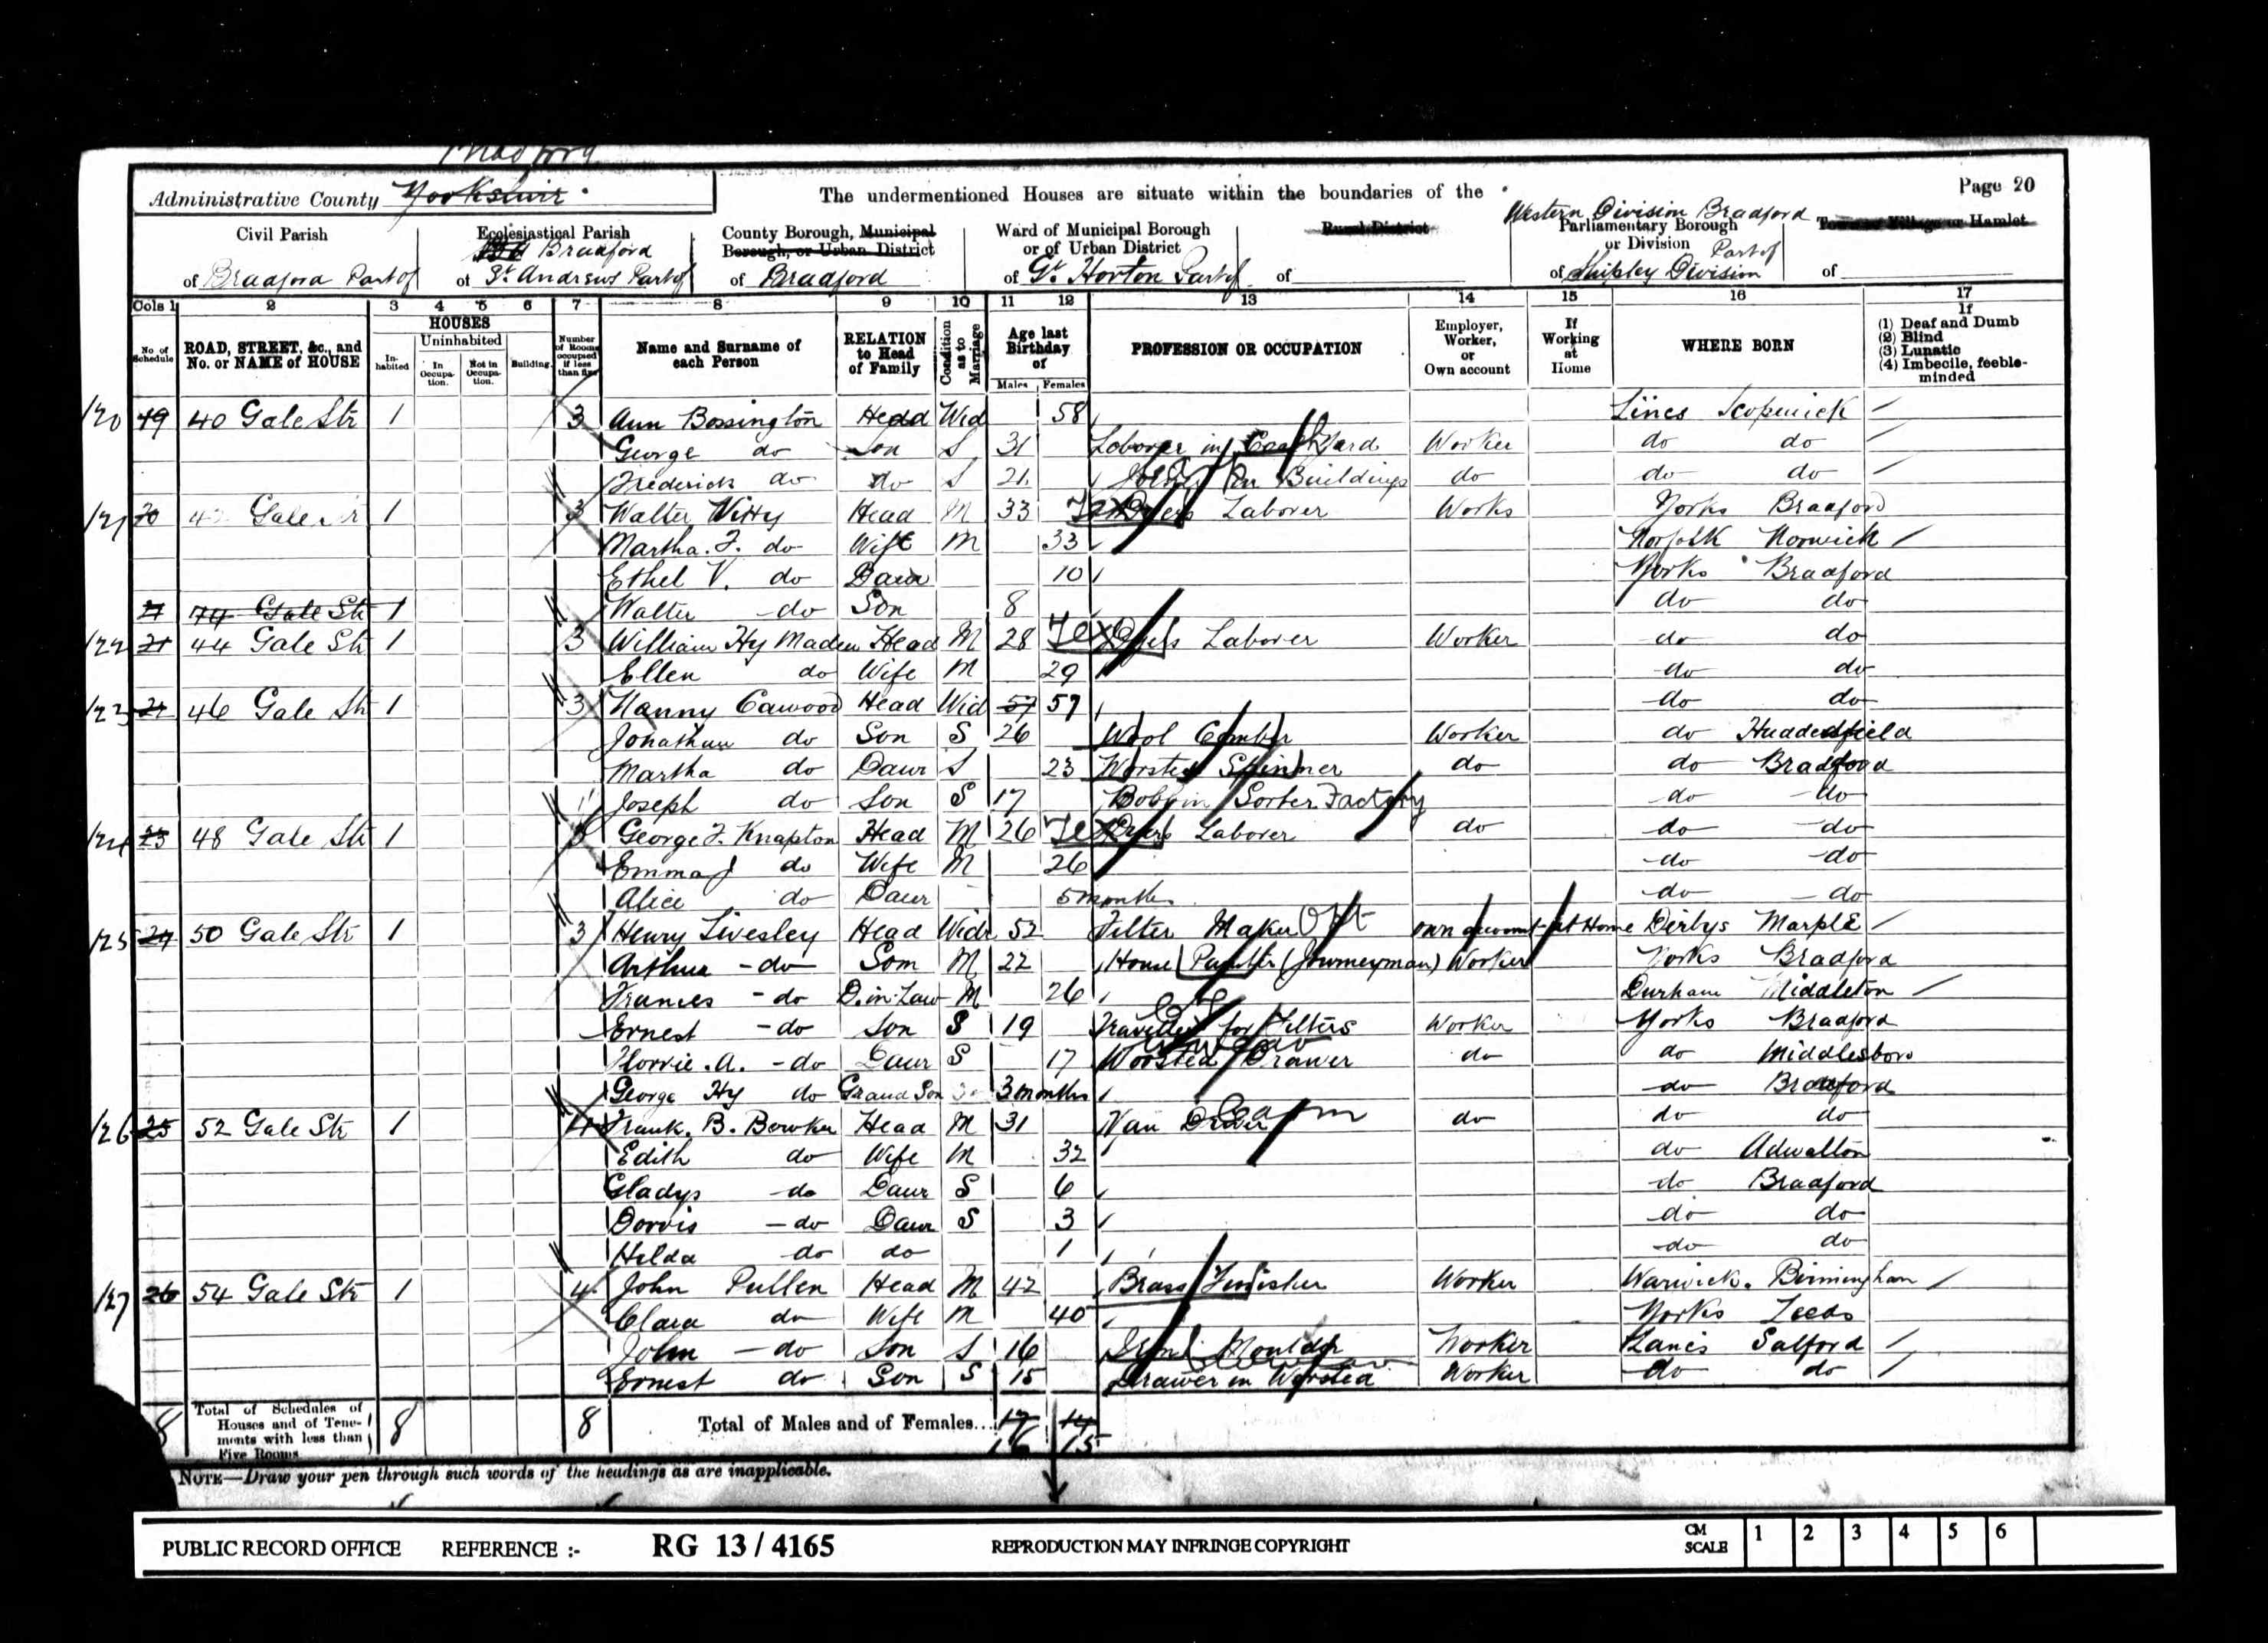 Bradford
Administrative County Yorkshire
The undermentioned Houses are situate within the boundaries of the
Page 20
Civil Parish of Bradford Part of
Ecclesiastical Parish of Bradford St. Andrews Part of
County Borough, Municipal Borough, or Urban District of Bradford
Ward of Municipal Borough or of Urban District of Gt. Horton Part of
Rural District of
Western Division Bradford Parliamentary Borough or Division of Part of Shipley Division
Town or Village or Hamlet of
Cols 1 2 3 4 5 6 7 8 9 10 11 12 13 14 15 16 17
No of Schedule
ROAD, STREET, &c., and No. or NAME of HOUSE
HOUSES
Inhabited
Uninhabited
In Occupation.
Not in Occupation.
Building.
Number of Rooms occupied if less than five
Name and Surname of each Person
RELATION to Head of Family
Condition as to Marriage
Age last Birthday of
Males Females
PROFESSION OR OCCUPATION
Employer, Worker, or Own account
If Working at Home
WHERE BORN
If
(1) Deaf and Dumb
(2) Blind
(3) Lunatic
(4) Imbecile, feeble-minded
120 19 40 Gale Str 1 3 Ann Bossington Head Wid 58 Lincs Scopwick
George do Son S 31 Laborer in Yard Worker do do
Frederick do do S 21 Buildings do do do
121 20 42 Gale Str 1 3 Walter Vitty Head M 33 Dyers Laborer Works Yorks Bradford
Martha. F. do Wife M 33 Norfolk Norwich
Ethel V. do Daur 10 Yorks Bradford
21 44 Gale Str 1 Walter do Son 8 do do
122 21 44 Gale Str 1 3 William Hy Maden Head M 28 Dyers Laborer Worker do do
Ellen do Wife M 29 do do
123 46 Gale Str 1 3 Nanny Cawood Head Wid 57 57 do do
Jonathan do Son S 26 Wool Comber Worker do Huddersfield
Martha do Daur S 23 Worsted Spinner do do Bradford
Joseph do Son S 17 Bobbin Sorter Factory do do
124 23 48 Gale Str 1 3 George F. Knapton Head M 26 Dyers Laborer do do do
Emma J do Wife M 26 do do
Alice do Daur 5 months do do
125 24 50 Gale Str 1 3 Henry Livesley Head Widr 52 Filter Maker own account at Home Derbys Marple
Arthur do Son M 22 House Painter (Journeyman) Worker Yorks Bradford
Frances do D. in Law M 26 Durham Middleton
Ernest do Son S 19 Traveller for Filters Worker Yorks Bradford
Florrie. A. do Daur S 17 Worsted Drawer do do Middlesboro
George Hy do Grand Son 3 months do Bradford
126 25 52 Gale Str 1 4 Frank. B. Bowker Head M 31 Van Driver do do do
Edith do Wife M 32 do Adwalton
Gladys do Daur S 6 do Bradford
Dorris do Daur S 3 do do
Hilda do do 1 do do
127 26 54 Gale Str 1 4 John Pullen Head M 42 Brass Finisher Worker Warwick. Birmingham
Clara do Wife M 40 Yorks Leeds
John do Son S 16 Iron Moulder Worker Lancs Salford
Ernest do Son S 15 Drawer in Worsted Worker do do
8 Total of Schedules of Houses and of Tenements with less than Five Rooms 8 8 Total of Males and of Females... 17 14
16 15
NOTE—Draw your pen through such words of the headings as are inapplicable.
PUBLIC RECORD OFFICE REFERENCE :- RG 13 / 4165 REPRODUCTION MAY INFRINGE COPYRIGHT CM SCALE 1 2 3 4 5 6